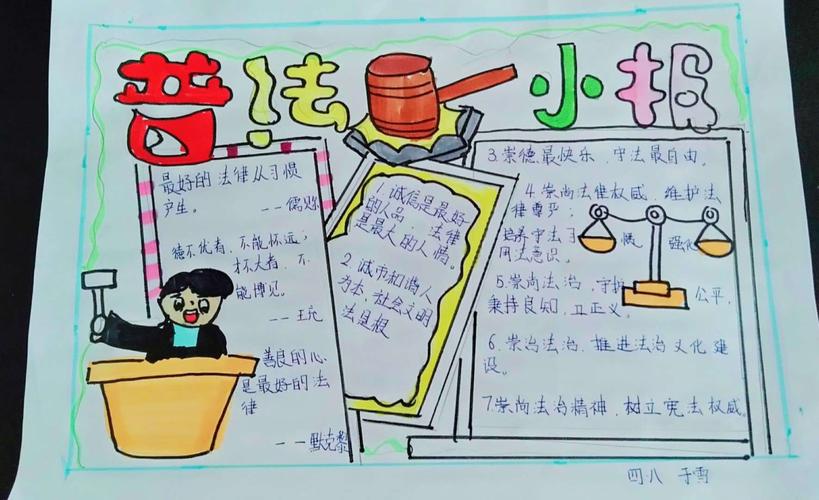 普法小报
最好的法律从习惯
产生。
——儒
德不优者,不能怀远;
才不大者,不
能博见。
——王充
善良的心
是最好的法
律
——默克黎
1.诚信是最好
的人品,法律
是最大的人情。
2.城市和谐人
为本,社会文明
法是根
3.崇德最快乐,守法最自由。
4.崇尚法律权威,维护法
律尊严;
培养守法习惯 强化
用法意识。
5.崇尚法治,守护 公平,
秉持良知,正义。
6.崇治法治,推进法治文化建
设。
7.崇尚法治精神,树立宪法权威。
四.八 于雪